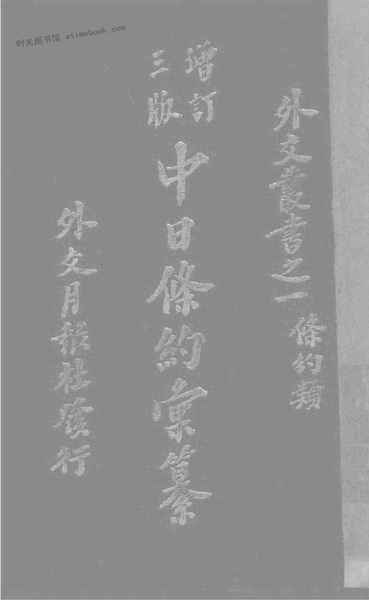 时光图书馆 etimebook.com
外交叢書之一 條約類
增訂
三版
中日條約彙纂
外交月報社發行